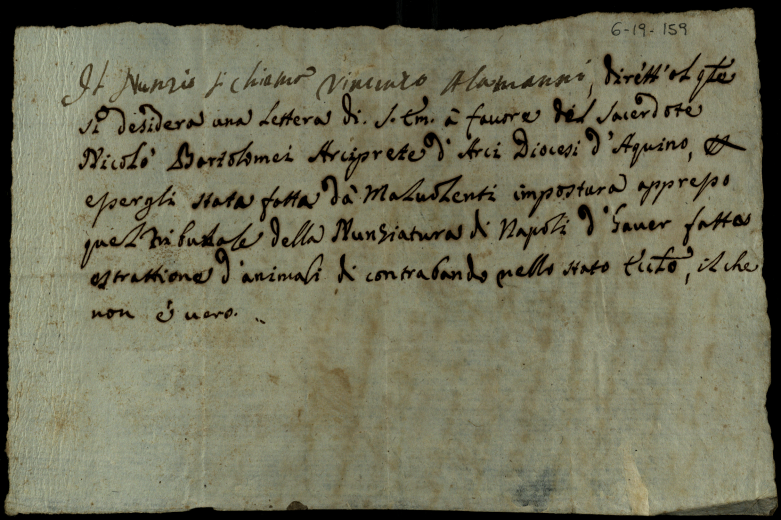 6-19-159
Il Nunzio si chiama Vincenzo Alamanni, dirett' al qle
si desidera una lettera di S. Em. à favore del Sacerdote
Nicolò Bartolomei Arciprete d'Arci Diocesi d'Aquino,
e pergli stata fatta dà Malvolenti impostura apprepo
quel Tribunale della Nunziatura di Napoli d'haver fatto
estrattione d'animali di contrabando nello stato Eccl.co, il che
non è vero.